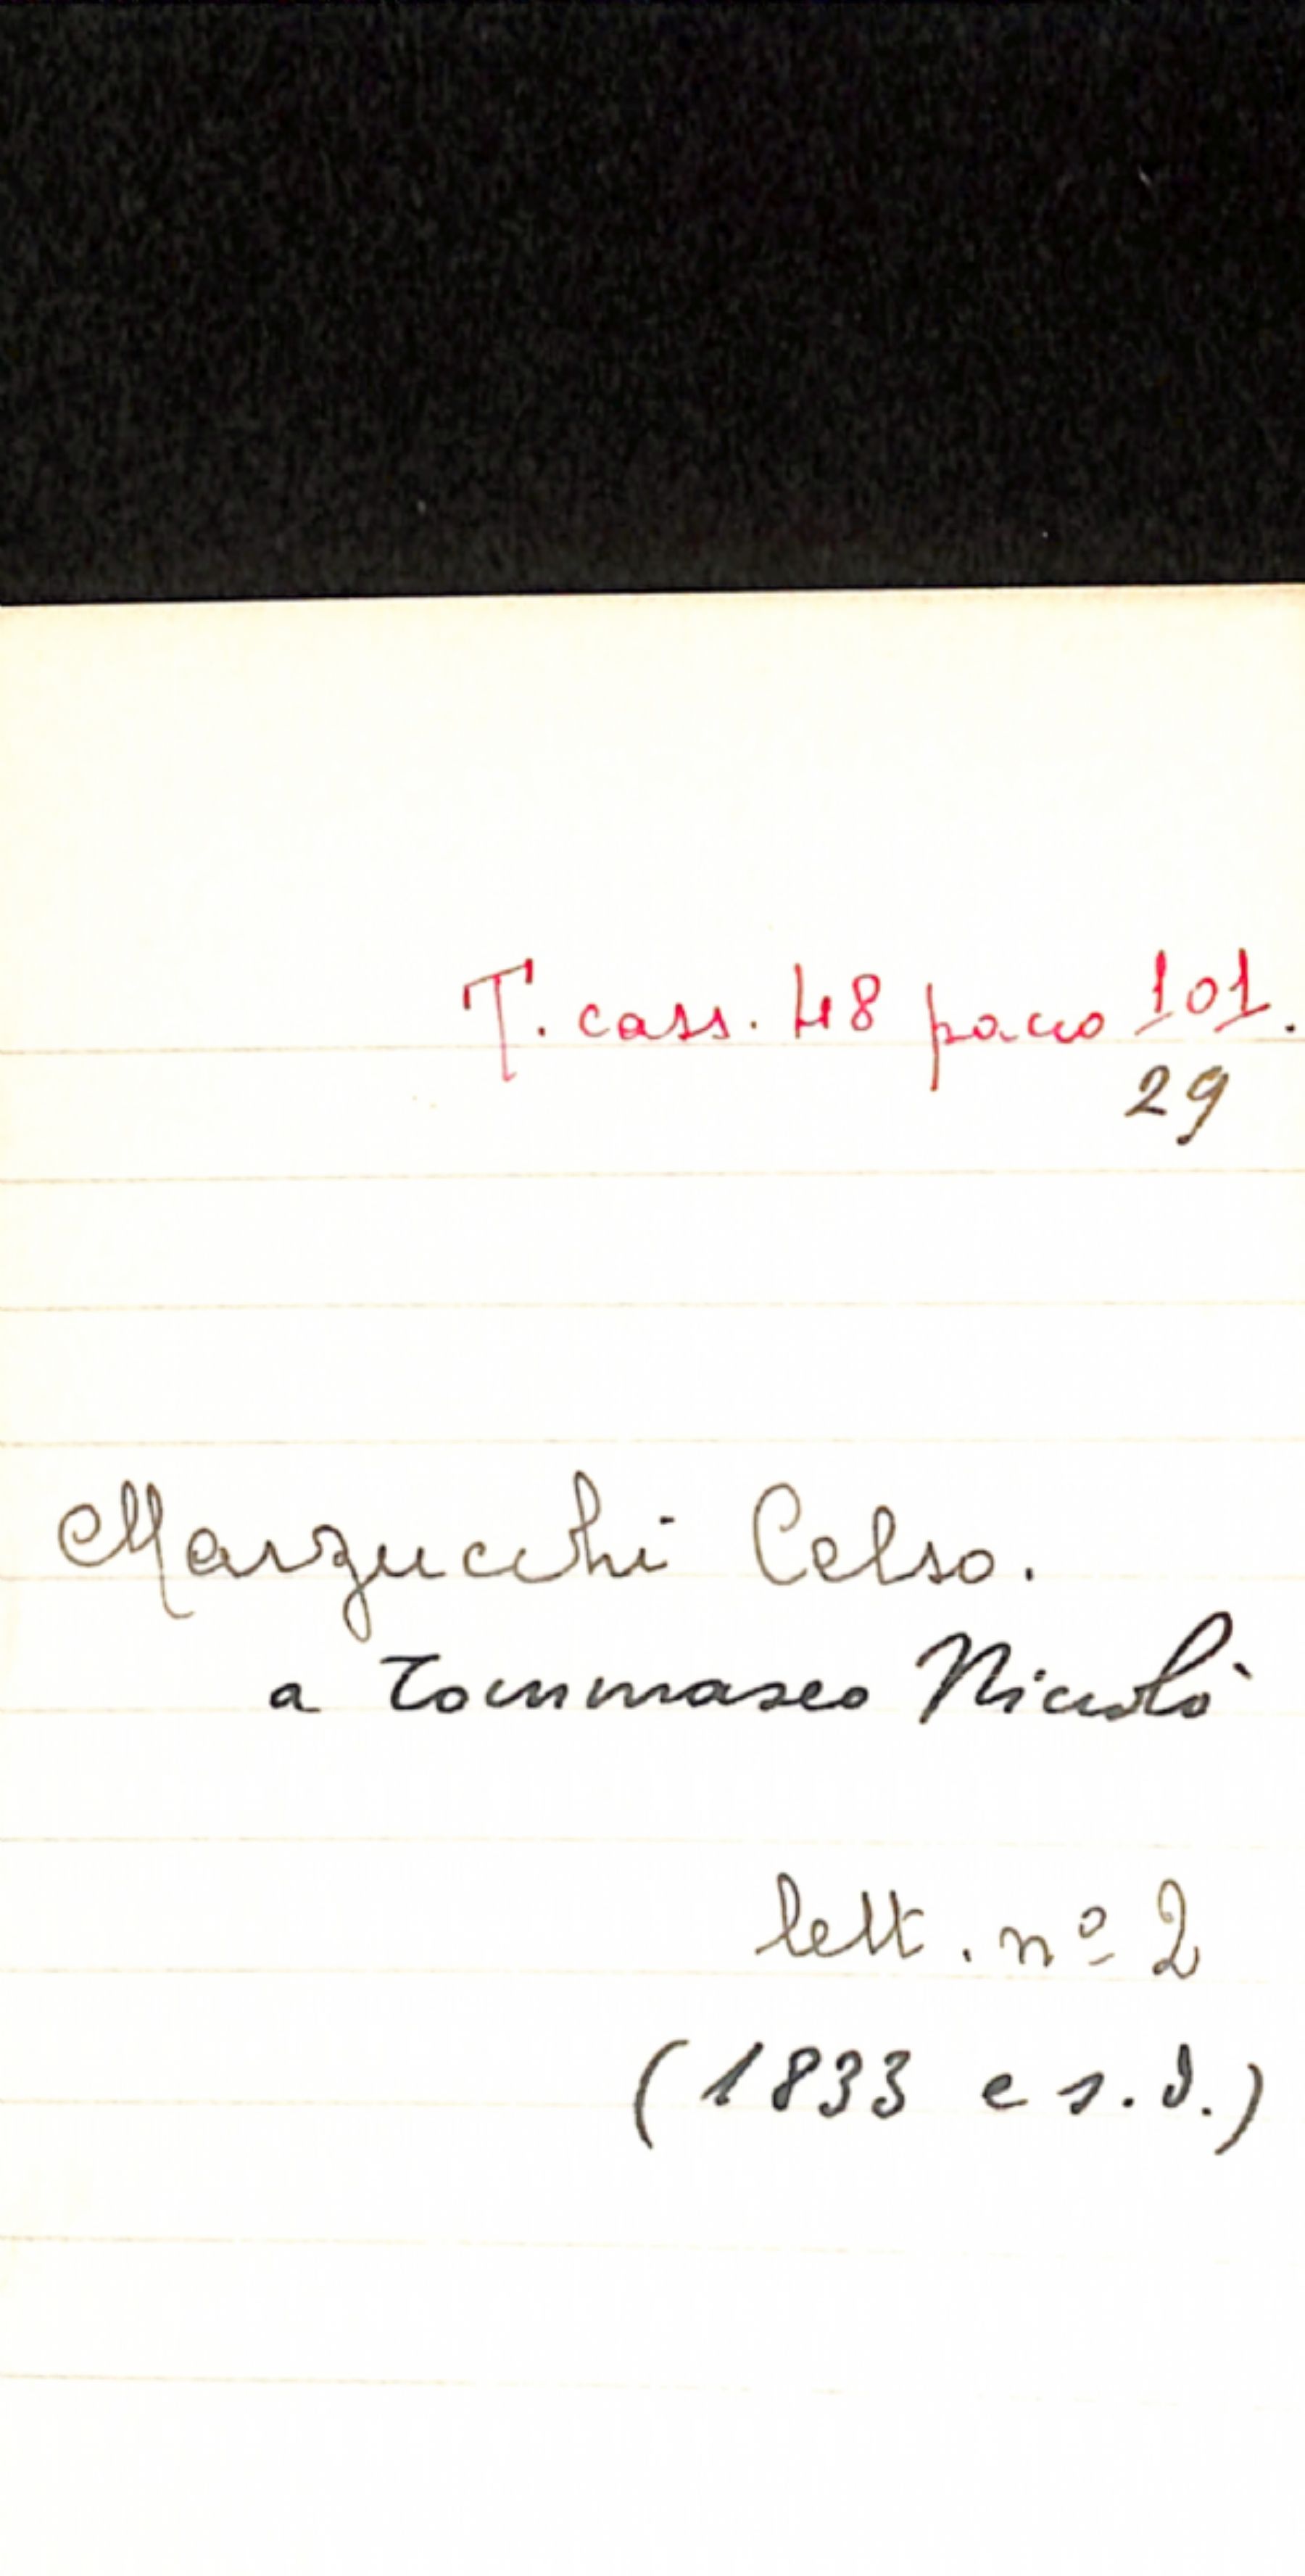 T. cass. 48 pacco 101.
29
Marzucchi Celso.
a Tommaseo Niccolò
lett. nº 2
(1833 e s.d.)